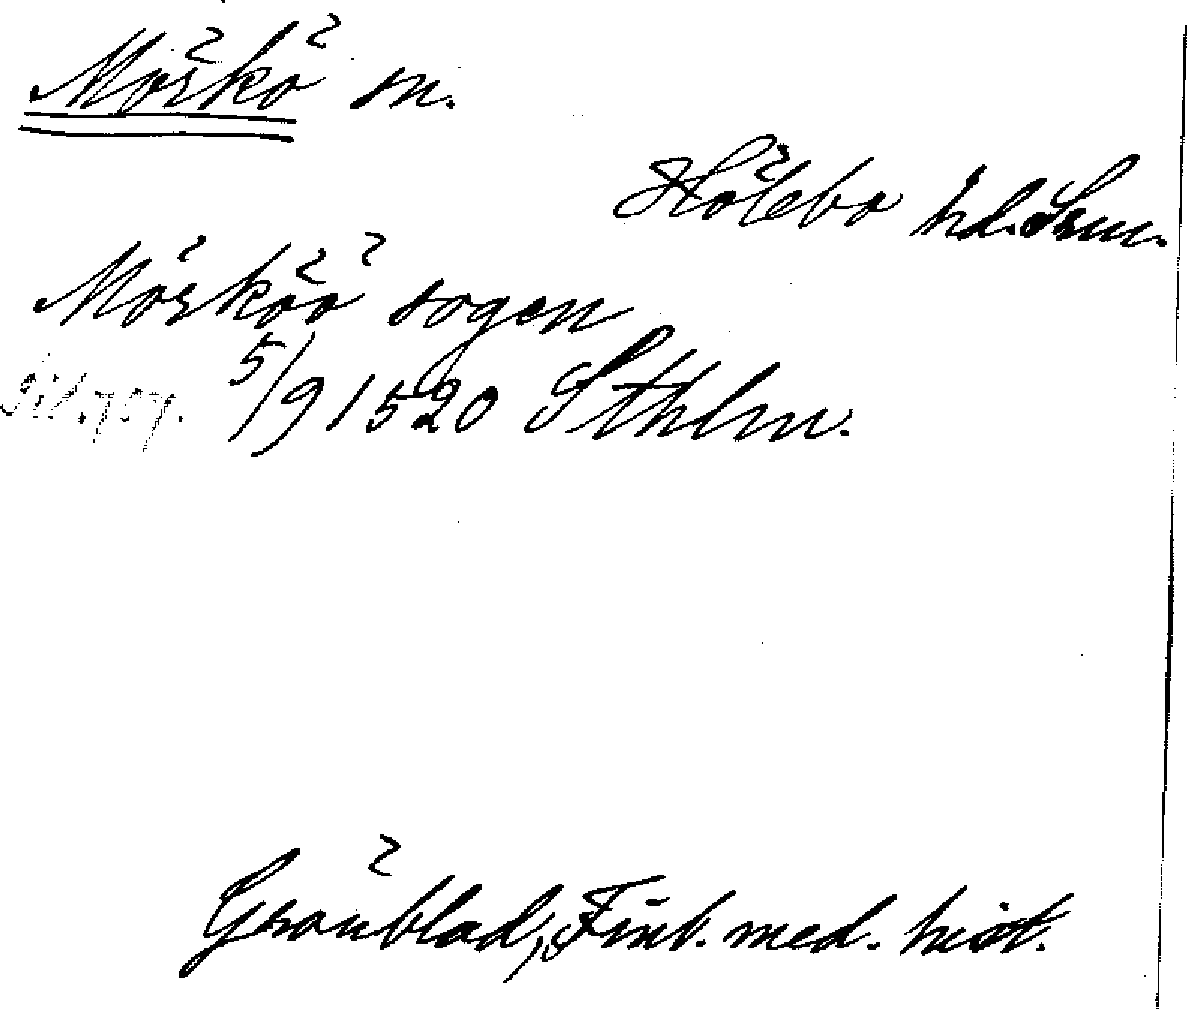 Mörkö sn.
Hölebo hd. Srm.
Mörköö sogen
5/9 1520 Sthlm.
Grönblad, Finl. med. hist.